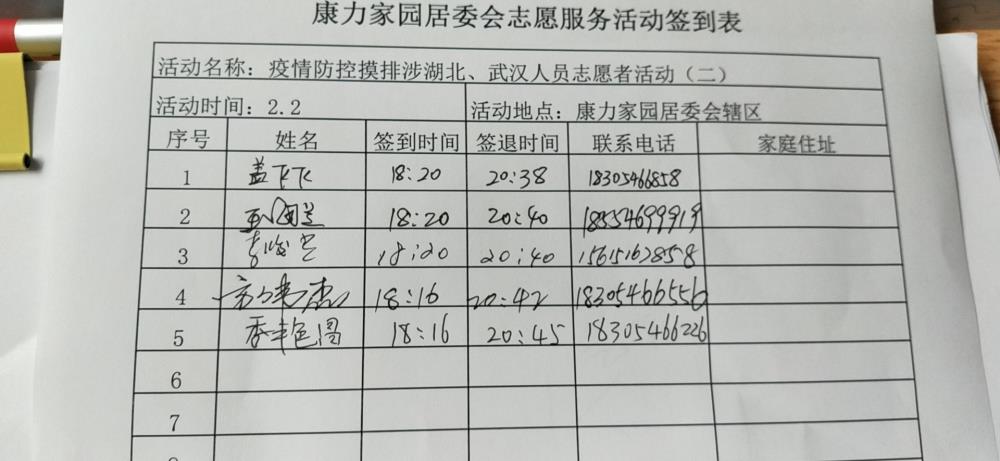 康力家园居委会志愿服务活动签到表
活动名称：疫情防控摸排涉湖北、武汉人员志愿者活动（二）
活动时间：2.2 活动地点：康力家园居委会辖区
序号 姓名 签到时间 签退时间 联系电话 家庭住址
1 盖飞飞 18:20 20:38 18305466858
2 18:20 20:40 18554699919
3 18:20 20:40 15615162858
4 18:16 20:42 18305466556
5 18:16 20:45 18305466226
6
7